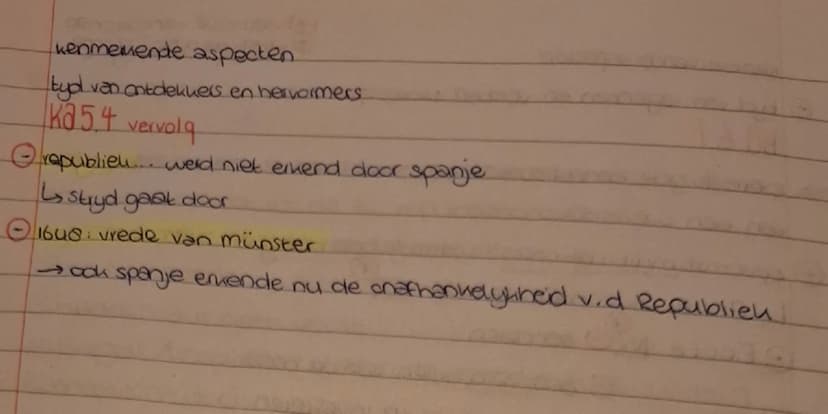 kenmerkende aspecten
tijd van ontdekkers en hervormers
Ka 5.4 vervolg
- republiek... werd niet erkend door spanje
↳ strijd gaat door
- 1648: vrede van münster
→ ook spanje erkende nu de onafhankelijkheid v.d Republiek